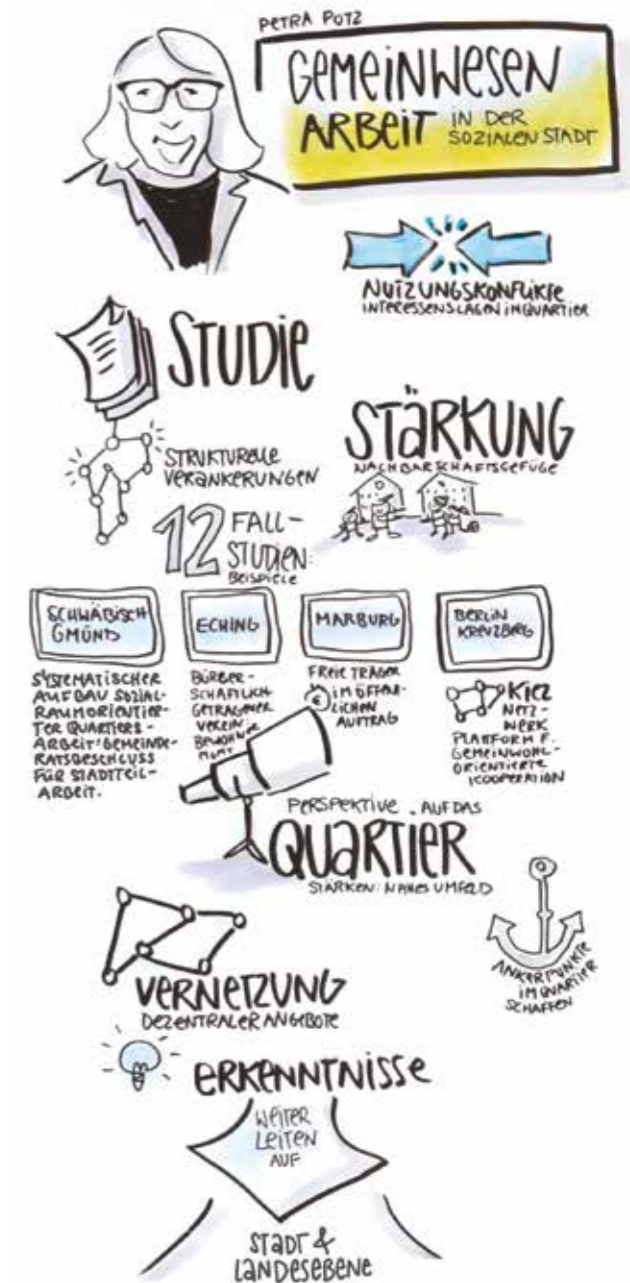 PETRA POTZ
GEMEINWESEN
ARBEIT IN DER
SOZIALEN STADT
NUTZUNGSKONFLIKTE
INTERESSENSLAGEN IM QUARTIER
STUDIE
STÄRKUNG
NACHBARSCHAFTSGEFÜGE
STRUKTURELLE
VERANKERUNGEN
12 FALL-
STUDIEN:
BEISPIELE
SCHWÄBISCH
GMÜND
SYSTEMATISCHER
AUFBAU SOZIAL-
RAUMORIENTIER-
TER QUARTIERS-
ARBEIT: GEMEINDE-
RATSBESCHLUSS
FÜR STADTTEIL-
ARBEIT.
ECHING
BÜRGER-
SCHAFTLICH
GETRAGENER
VEREIN
MARBURG
FREIE TRÄGER
IM ÖFFENT-
LICHEN
AUFTRAG
BERLIN
KREUZBERG
KIEZ
NETZ-
WERK
PLATTFORM F.
GEMEINWOHL-
ORIENTIERTE
KOOPERATION
PERSPEKTIVE AUF DAS
QUARTIER
STÄRKEN: NAHES UMFELD
ANKERPUNKTE
IM QUARTIER
SCHAFFEN
VERNETZUNG
DEZENTRALER ANGEBOTE
ERKENNTNISSE
WEITER
LEITEN
AUF
STADT &
LANDESEBENE